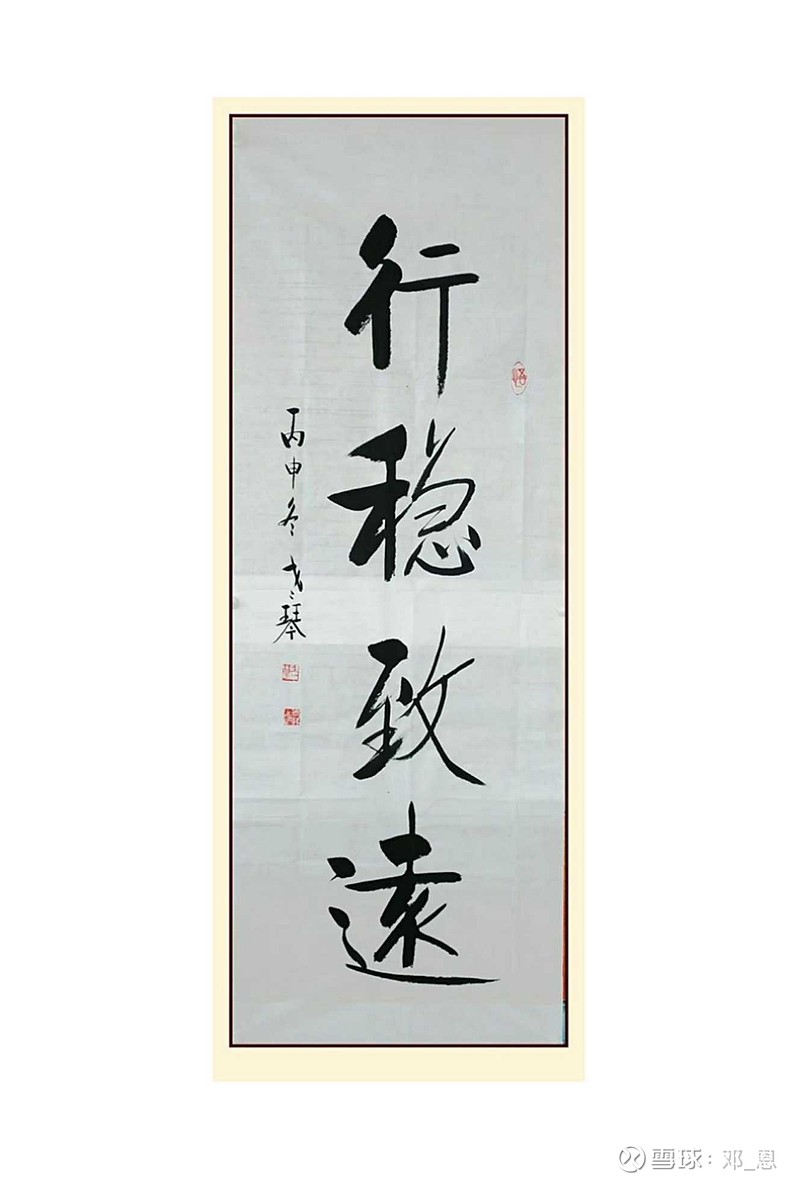 行稳致遠
丙申冬
琴
雪球：邓_恩